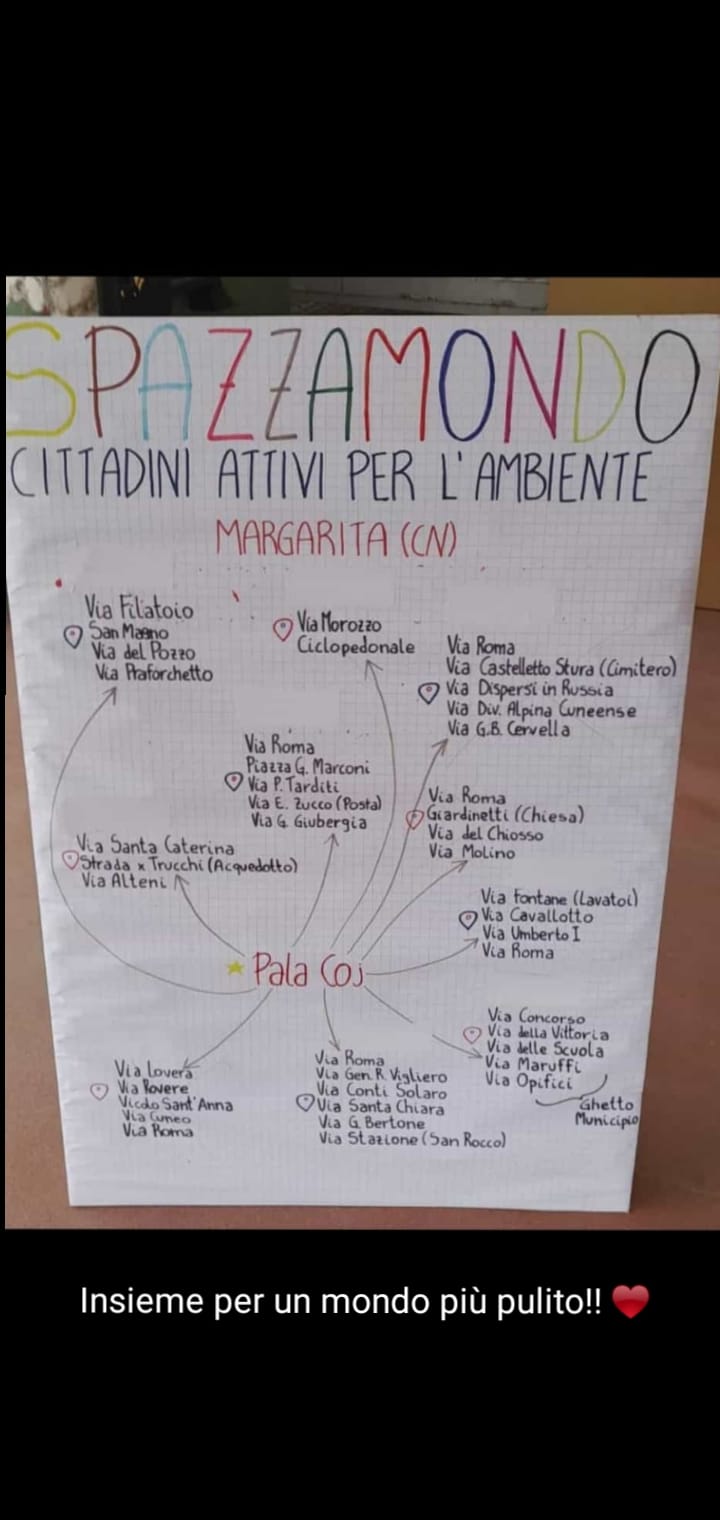 SPAZZAMONDO
CITTADINI ATTIVI PER L'AMBIENTE
MARGARITA (CN)
Via Filatoio
San Magno
Via del Pozzo
Via Praforchetto
Via Morozzo
Ciclopedonale
Via Roma
Via Castelletto Stura (Cimitero)
Via Dispersi in Russia
Via Div. Alpina Cuneense
Via G.B. Cervella
Via Roma
Piazza G. Marconi
Via P. Tarditi
Via E. Zucco (Posta)
Via G. Giubergia
Via Roma
Giardinetti (Chiesa)
Via del Chiosso
Via Molino
Via Santa Caterina
Strada x Trucchi (Acquedotto)
Via Alteni
Via Fontane (Lavatoi)
Via Cavallotto
Via Umberto I
Via Roma
Pala Coj
Via Concorso
Via della Vittoria
Via delle Scuola
Via Maruffi
Via Opifici
Ghetto
Municipio
Via Lovera
Via Rovere
Vicolo Sant'Anna
Via Cuneo
Via Roma
Via Roma
Via Gen. R. Vigliero
Via Conti Solaro
Via Santa Chiara
Via G. Bertone
Via Stazione (San Rocco)
Insieme per un mondo più pulito!! ❤️